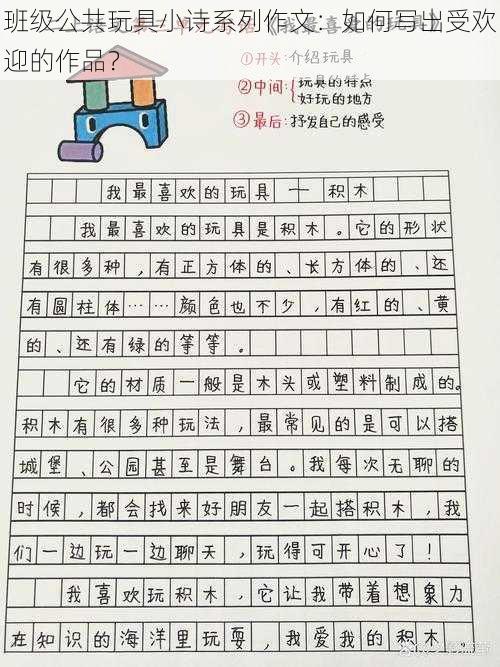 班级公共玩具小诗系列作文：如何写出受欢
迎的作品？
①开头：介绍玩具
②中间：玩具的特点
好玩的地方
③最后：抒发自己的感受
我最喜欢的玩具——积木
我最喜欢的玩具是积木。它的形状
有很多种，有正方体的、长方体的、还
有圆柱体……颜色也不少，有红的、黄
的、还有绿的等等。
它的材质一般是木头或塑料制成的。
积木有很多种玩法，最常见的是可以搭
城堡、公园甚至是舞台。我每次无聊的
时候，都会找来好朋友一起搭积木，我
们一边玩一边聊天，玩得可开心了！
我喜欢玩积木，它让我带着想象力
在知识的海洋里玩耍，我爱我的积木